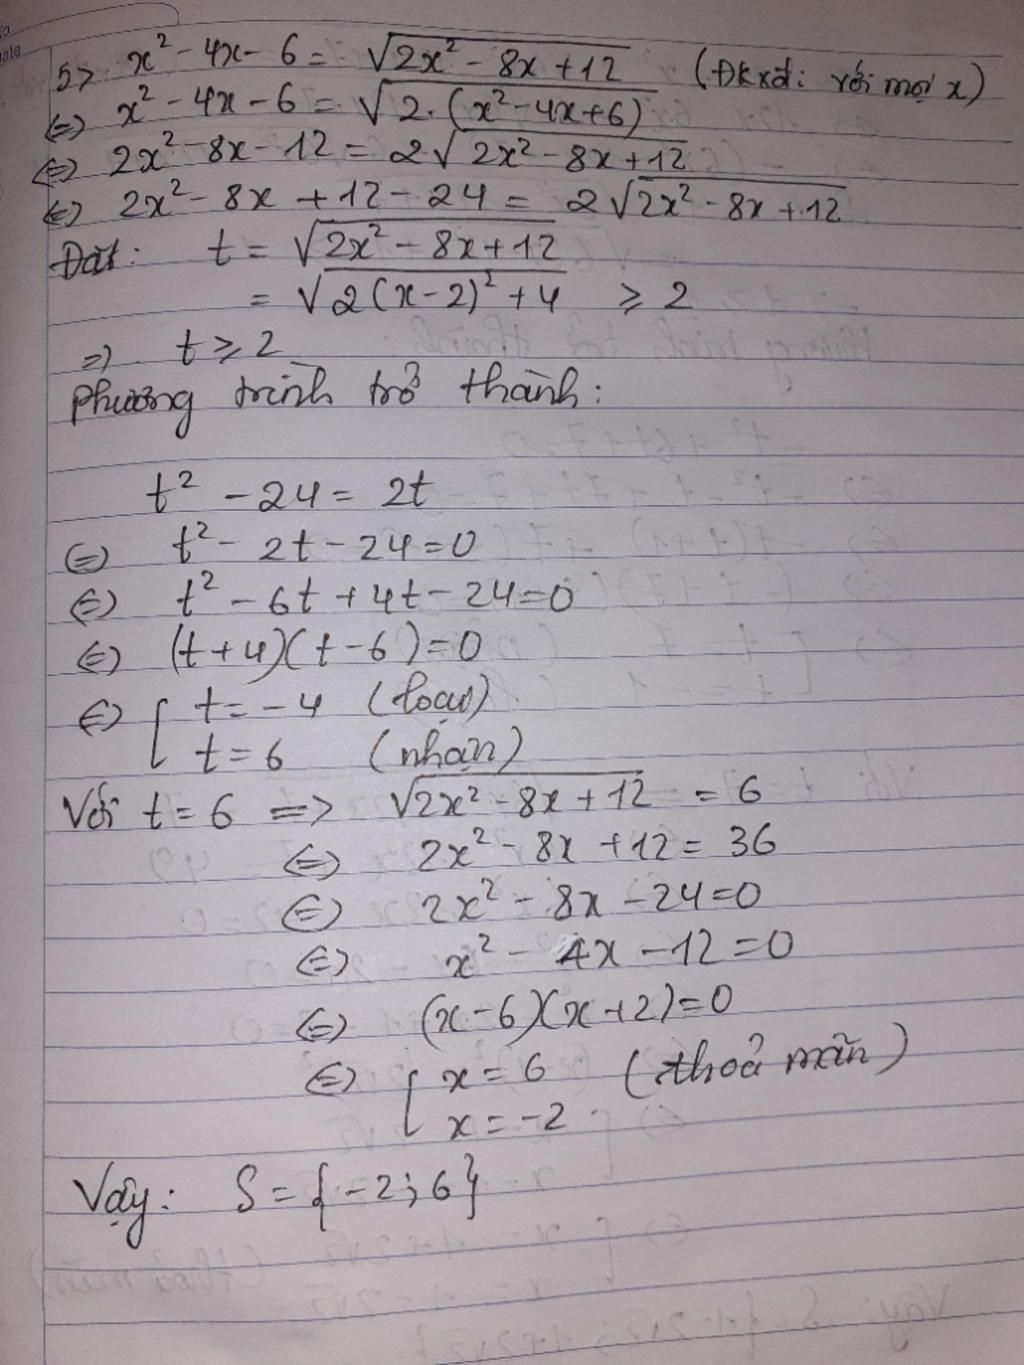 5> x² - 4x - 6 = √(2x² - 8x + 12) (Đkxđ: với mọi x)
<=> x² - 4x - 6 = √(2.(x² - 4x + 6))
<=> 2x² - 8x - 12 = 2√(2x² - 8x + 12)
<=> 2x² - 8x + 12 - 24 = 2√(2x² - 8x + 12)
Đặt: t = √(2x² - 8x + 12)
= √(2(x - 2)² + 4) ⩾ 2
=> t ⩾ 2
Phương trình trở thành:
t² - 24 = 2t
<=> t² - 2t - 24 = 0
<=> t² - 6t + 4t - 24 = 0
<=> (t + 4)(t - 6) = 0
<=> [ t = -4 (loại)
t = 6 (nhận)
Với t = 6 => √(2x² - 8x + 12) = 6
<=> 2x² - 8x + 12 = 36
<=> 2x² - 8x - 24 = 0
<=> x² - 4x - 12 = 0
<=> (x - 6)(x + 2) = 0
<=> [ x = 6 (thoả mãn)
x = -2
Vậy: S = {-2; 6}